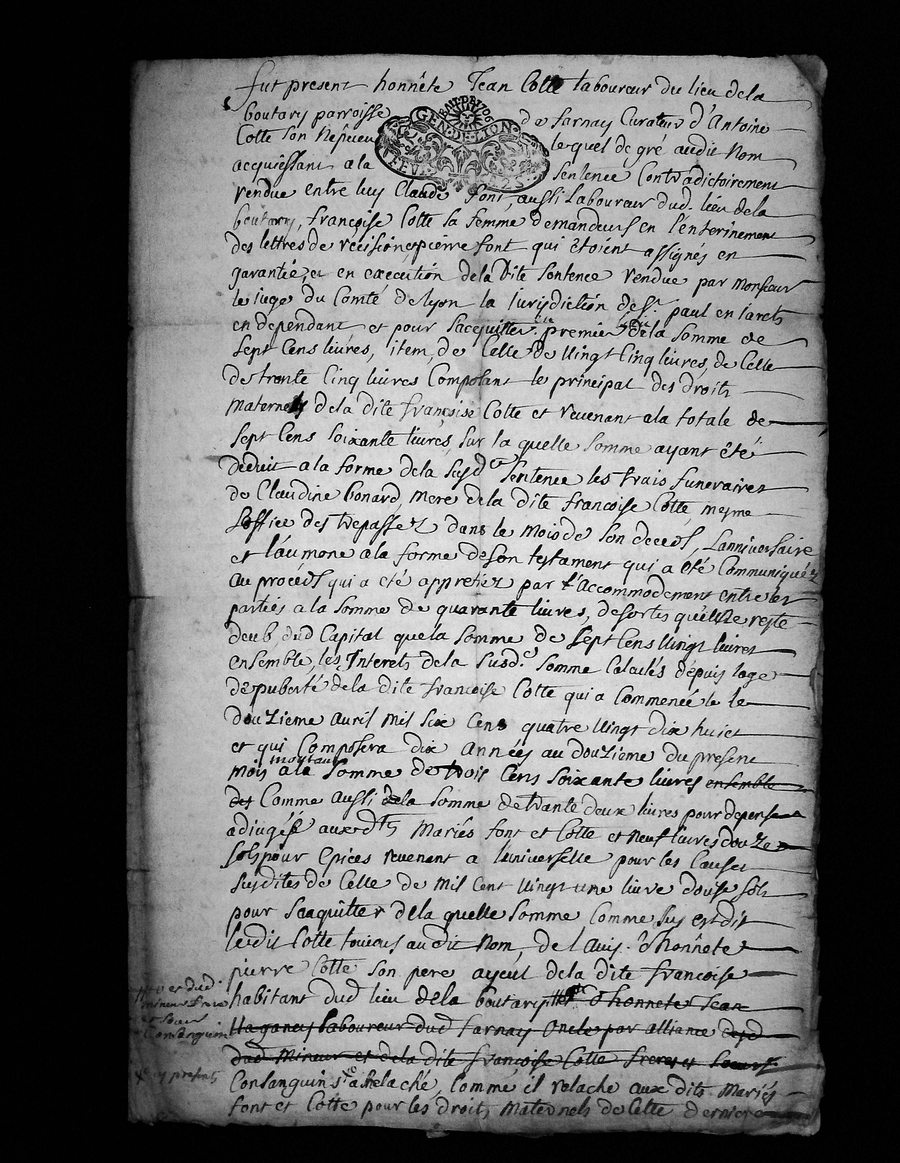 fut present honnête Jean Cotte laboureur du lieu dela
boutary parroisse de farnay Curateur d'Antoine
GEN. DE LION
Cotte son Nepueu lequel de gré audit Nom
acquiessant a la Sentence Contradictoirement
rendue entre luy Claude font, aussi Laboureur dud. lieu dela
boutary, françoise Cotte sa femme demandeurs en l'enterinement
des lettres de récision, et pierre font qui étoient assignés en
garantie et en execution dela dite sentence rendue par Monsieur
le iuge du Comté de lyon la jurisdiction de St. paul en Jarets
en dependant, et pour sacquitter premier dela Somme de
Sept Cens livres, item, de Celle de Vingt Cinq livres, de Celle
de trente Cinq livres Composant le principal des droits
maternels dela dite françoise Cotte et revenant ala totale de
Sept Cens soixante livres, sur la quelle somme ayant été
déduit ala forme dela susd.e sentence les frais funeraires
de Claudine bonard mere dela dite françoise Cotte, mesme
l'office des trepassez dans le mois de son deceds, Lanniversaire
et l'aumone ala forme de son testament qui a été Communiquéz
au procéds qui a été appretiez par l'accommodement entre les
parties a la somme de quarante livres, desortes quil ne reste
deub, dud Capital que la somme de Sept Cens Vingt livres
ensemble, les Interets dela susd.e somme Calculés depuis lage
de puberté dela dite françoise Cotte qui a Commencée le
douzieme avril Mil six Cens quatre Vingt dix huict
et qui Composera dix Années au douzieme du present
mois montant a la somme de trois Cens soixante livres ensemble
det Comme aussi dela somme de trante deux livres pour depense
adiugés aux dts Mariés font et Cotte et neuf livres douze
sols pour Epices revenant a l'universelle pour les Causes
susdites de Celle de Mil Cent Vingt une livre douse sols
pour sacquitter dela quelle somme Comme sus est dit
ledit Cotte touiours audit Nom, de l'avis d'honnête
pierre Cotte son pere ayeul dela dite françoise
habitant dud lieu dela boutary d'honnete Jean
laboureur dud farnay Oncle par alliance
dud Mineur et dela dite françoise Cotte freres et soeurs
Consanguins a Relaché, Comme il relache aux dits Mariés
font et Cotte pour les droits Maternels de Cette derniere
et dud
mineur frere
et soeur
Consanguin
presents